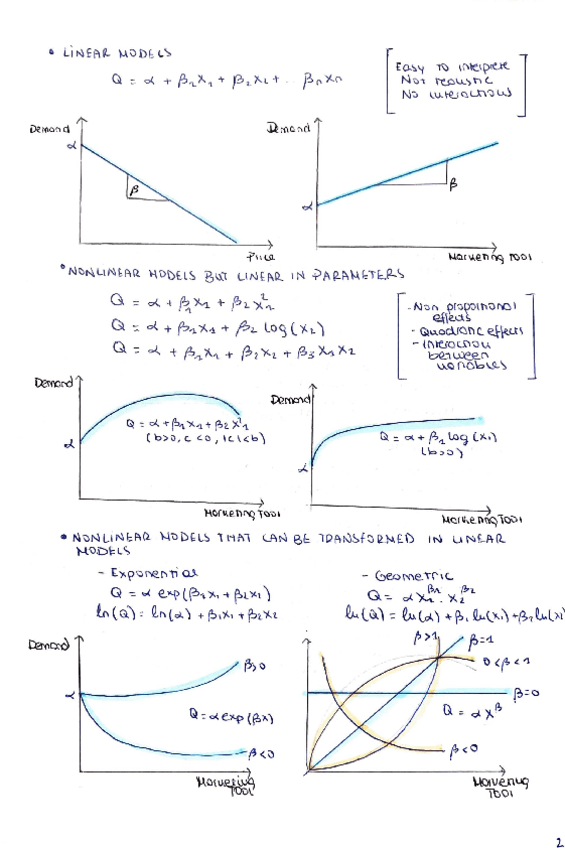 • LINEAR MODELS
Q = α + β₁x₁ + β₂x₂ + ... βₙxₙ
Easy to interprete
Not realistic
No interactions
Demand
α
β
Price
Demand
α
β
Marketing tool
• NONLINEAR MODELS BUT LINEAR IN PARAMETERS
Q = α + β₁x₁ + β₂x₁²
Q = α + β₁x₁ + β₂ log(x₂)
Q = α + β₁x₁ + β₂x₂ + β₃x₁x₂
- Non proportional
effects
- Quadratic effects
- Interaction
between
variables
Demand
α
Q = α + β₁x₁ + β₂x₁²
(b>0, c<0, |c|<b)
Marketing Tool
Demand
α
Q = α + β₁ log(x₁)
(b>0)
Marketing Tool
• NONLINEAR MODELS THAT CAN BE TRANSFORMED IN LINEAR
MODELS
- Exponential
Q = α exp(β₁x₁ + β₂x₂)
ln(Q) = ln(α) + β₁x₁ + β₂x₂
- Geometric
Q = αx₁^β₁ · x₂^β₂
ln(Q) = ln(α) + β₁ ln(x₁) + β₂ ln(x₂)
Demand
α
β>0
Q = α exp(βx)
β<0
Marketing
Tool
β>1
β=1
0<β<1
β=0
Q = αx^β
β<0
Marketing
Tool
2